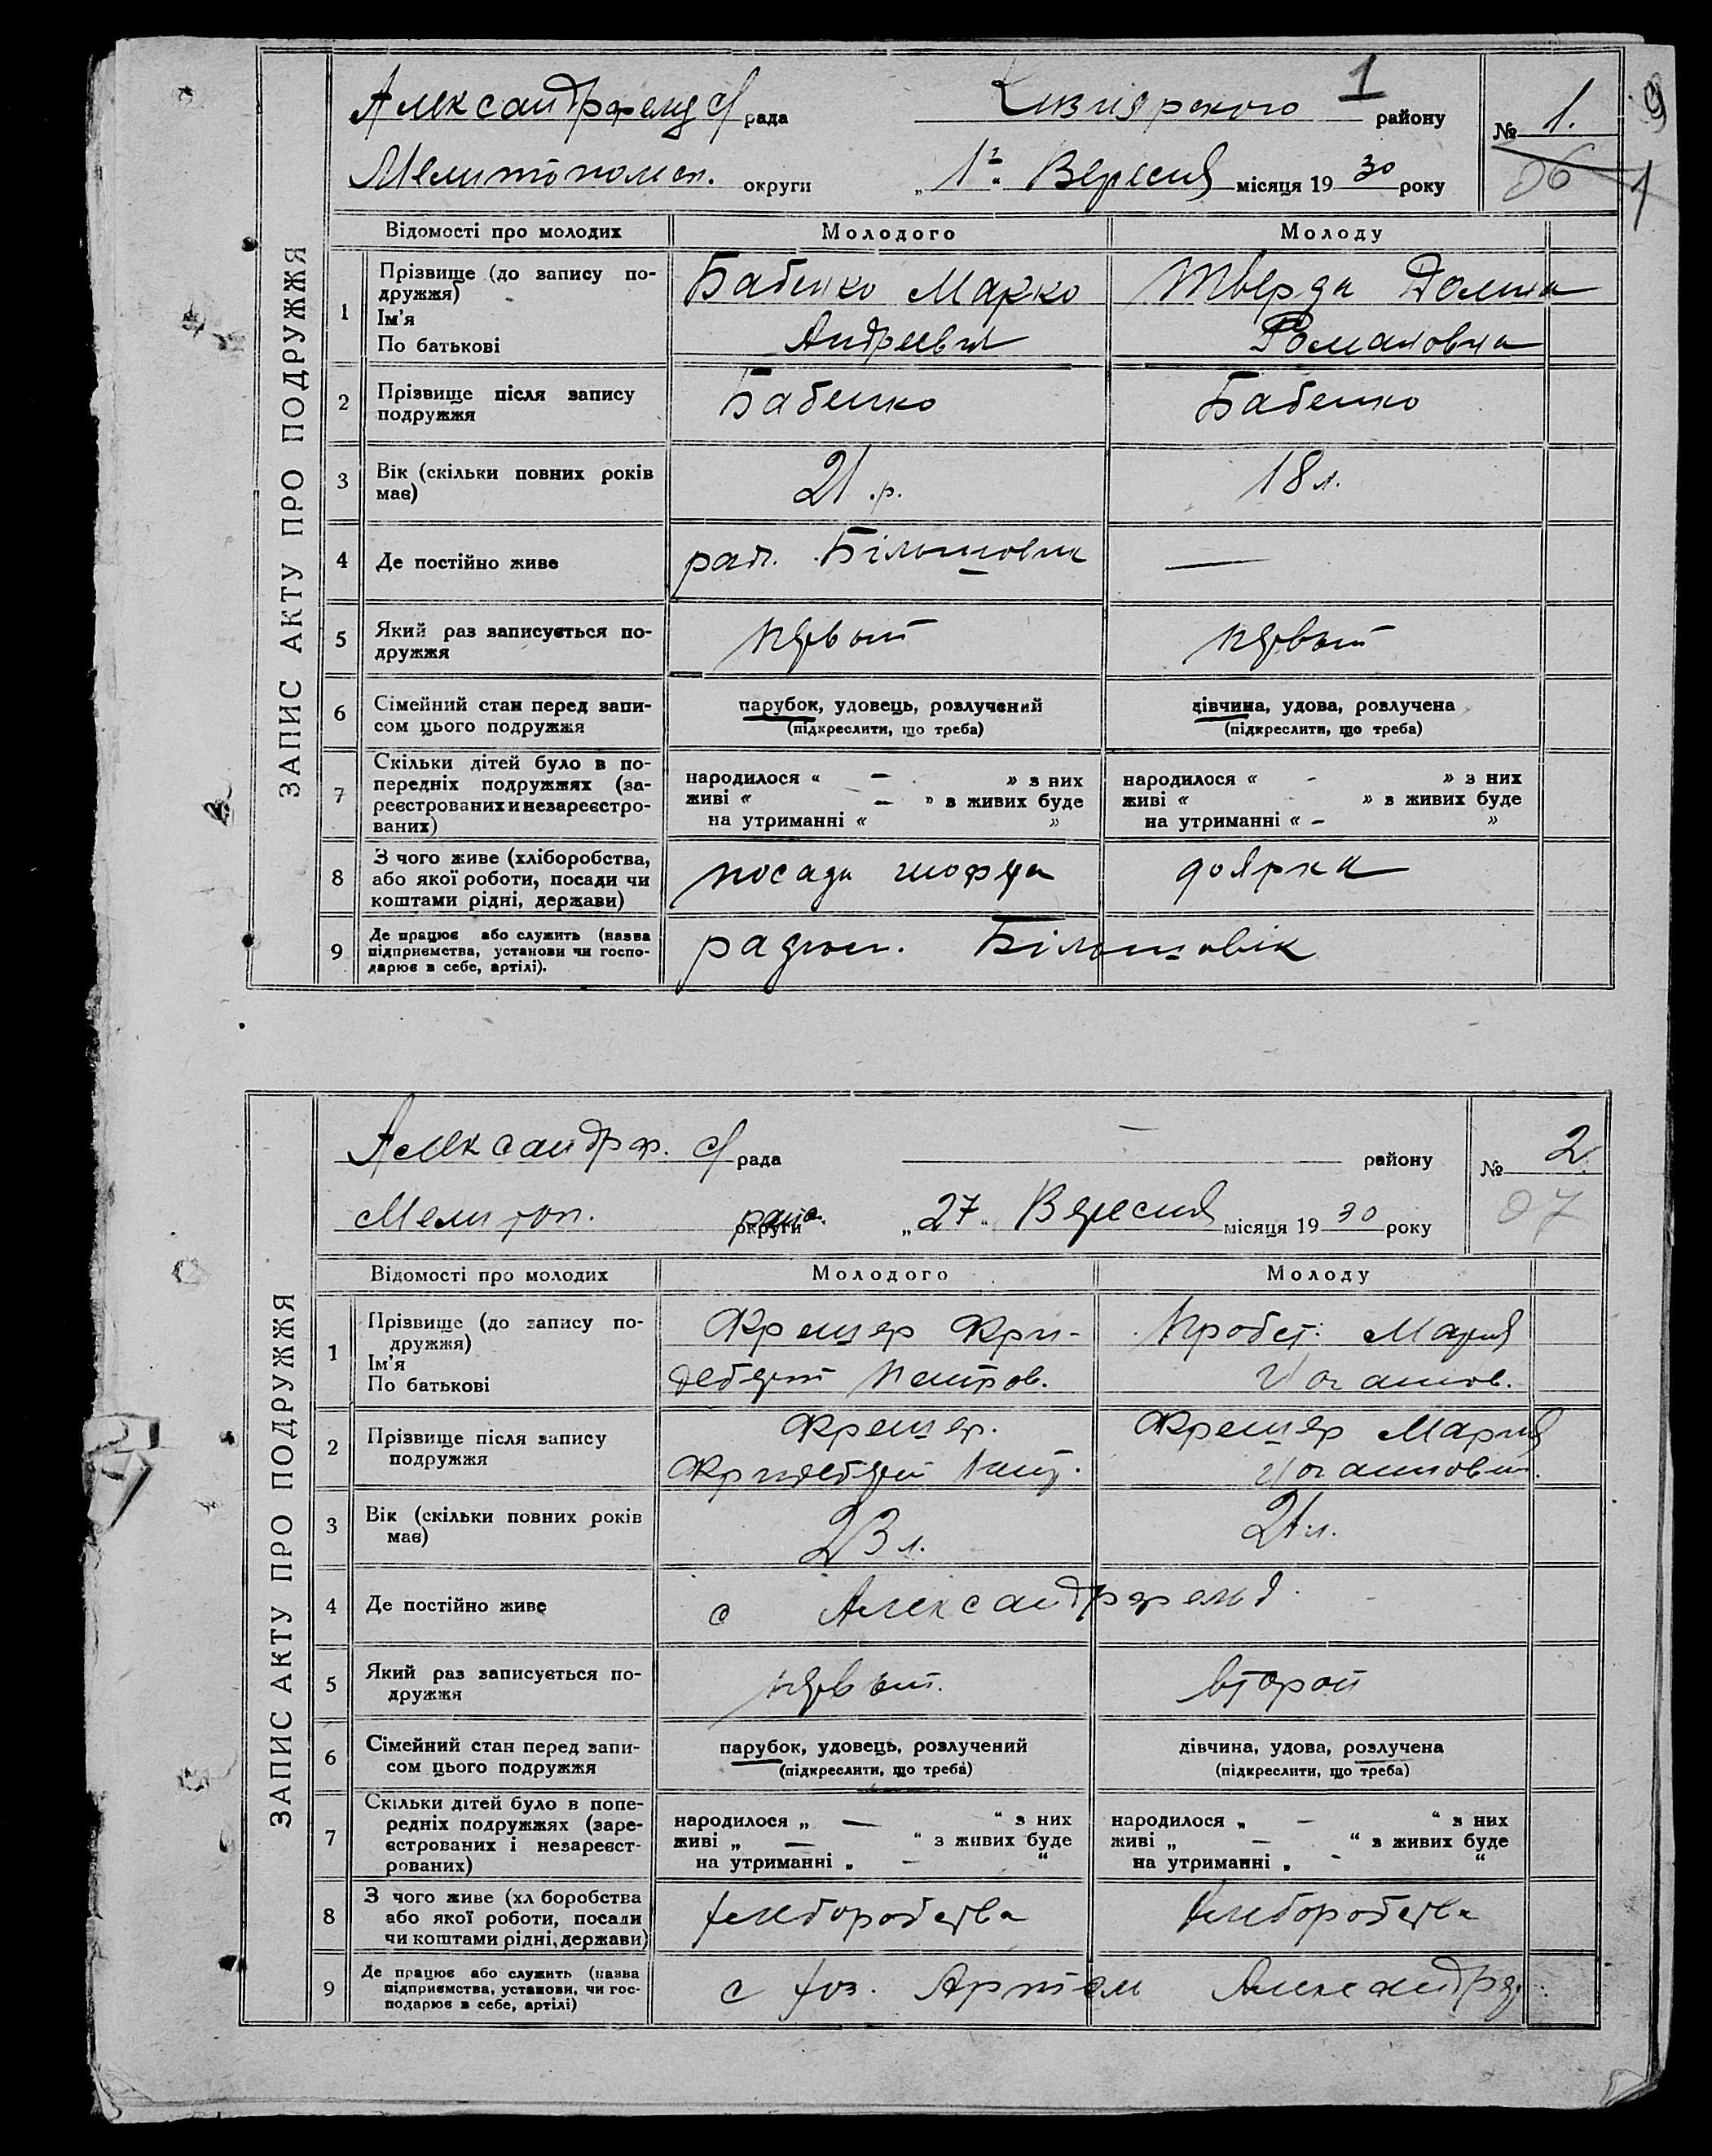 1
9
Александрфельд с/рада
району
№ 1.
Мелитопольск. округи
„ 1го “ Вересня місяця 19 30 року
06
1
ЗАПИС АКТУ ПРО ПОДРУЖЖЯ
Відомості про молодих Молодого Молоду
1
Прізвище (до запису по-
дружжя)
Ім'я
По батькові
Бабенко Марко
Андреевич
Тверда
Романовна
2
Прізвище після запису
подружжя
Бабенко
Бабенко
3
Вік (скільки повних років
має)
21 .р.
18 л.
4
Де постійно живе
рад. Більшовик
—
5
Який раз записується по-
дружжя
первый
первый
6
Сімейний стан перед запи-
сом цього подружжя
парубок, удовець, розлучений
(підкреслити, що треба)
дівчина, удова, розлучена
(підкреслити, що треба)
7
Скільки дітей було в по-
передніх подружжях (за-
реєстрованих и незареєстро-
ваних)
народилося “ — » з них
живі “ — » з живих буде
на утриманні “ »
народилося “ - » з них
живі “ » з живих буде
на утриманні “ – »
8
З чого живе (хліборобства,
або якої роботи, посади чи
коштами рідні, держави)
посади шофера
доярка
9
Де працює або служить (назва
підприємства, установи чи госпо-
дарює в себе, артілі).
радгосп. Більшовік
Александрф. с/рада
— району
№ 2.
Мелитоп. округи район.
„ 27 “ Вересня місяця 19 30 року
07
ЗАПИС АКТУ ПРО ПОДРУЖЖЯ
Відомості про молодих Молодого Молоду
1
Прізвище (до запису по-
дружжя)
Ім'я
По батькові
Фрешер Фри-
Пробст. Мария
Иоганнов.
2
Прізвище після запису
подружжя
Фрешер.
Фрешер Мария
Иоганновна.
3
Вік (скільки повних років
має)
23 л.
21 л.
4
Де постійно живе
с Александрфельд.
5
Який раз записується по-
дружжя
первый.
второй
6
Сімейний стан перед запи-
сом цього подружжя
парубок, удовець, розлучений
(підкреслити, що треба)
дівчина, удова, розлучена
(підкреслити, що треба)
7
Скільки дітей було в попе-
редніх подружжях (заре-
єстрованих і незареєст-
рованих)
народилося „ — “ з них
живі „ — “ з живих буде
на утриманні „ – “
народилося „ – “ з них
живі „ – “ з живих буде
на утриманні „ - “
8
З чого живе (хл боробства
або якої роботи, посади
чи коштами рідні, держави)
хлеборобства
хлеборобства
9
Де працює або служить (назва
підприємства, установи, чи гос-
подарює в себе, артілі)
с хоз. Артель Александрф.